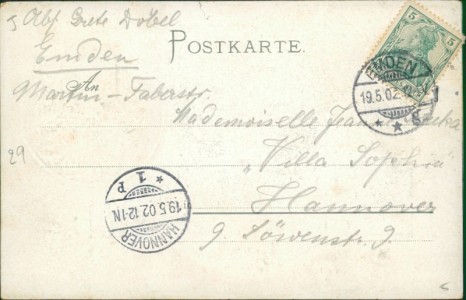 Abs. Grete Döbel
Emden
Martin-Faberstr.
29
POSTKARTE.
An
5 5
EMDEN
19.5.02.
Mademoiselle
„Villa Sophia"
Hannover
9. Löwenstr. 9.
HANNOVER
19.5.02.12-1N.
* 1 *
P